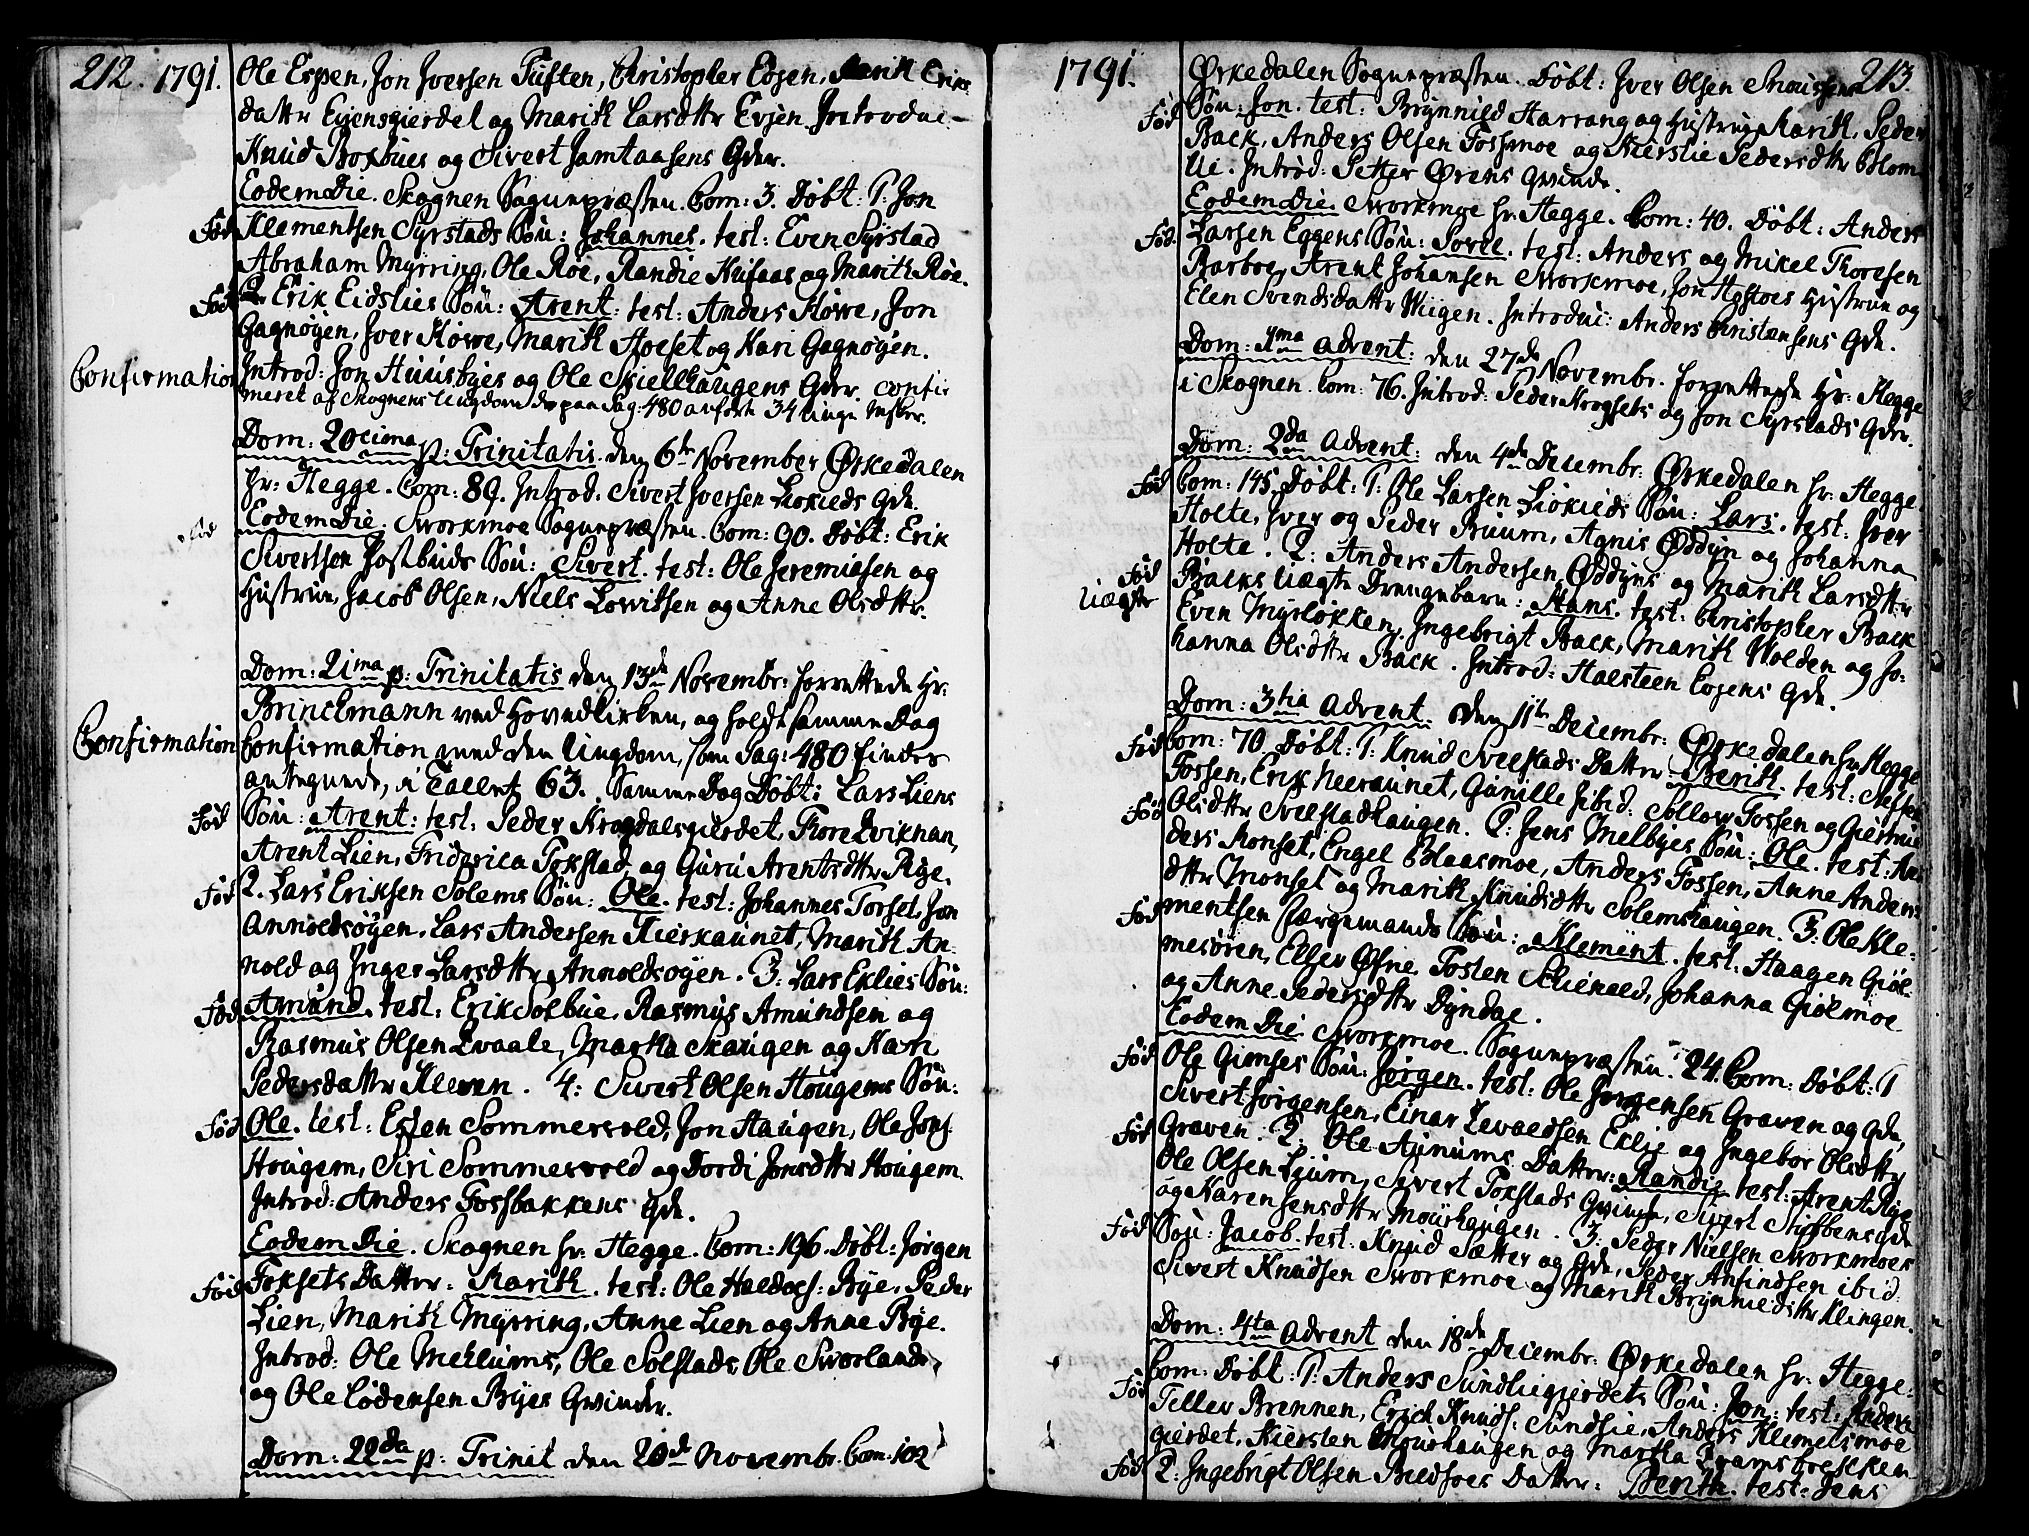 212. 1791.
Ole Espen, Jon Iversen Tuften, Christopher Evjen, Marit Eriks
dattr Evjensgierdet og Marith Larsdttr Evjen. Introduc:
Knud Boxbues og Sivert Jamtaasens Qdr.
Eodem Die. Skognen Sognepræsten. Com: 3. Døbt: 1. Jon
Fød Klementsen Syrstads Søn: Johannes. test: Even Syrstad
Abraham Myrring, Ole Roe, Randie Hufaas og Marith Roe.
Fød 2. Erik Eidslies Søn: Arent. test: Anders Howe, Jon
Gagnøyen, Iver Howe, Marith Hoeset og Kari Gagnøyen.
Confirmation Introd: Jon Huusbyes og Ole Skiellhaugens Qdr. Confir
meret af Skognens Ungdom de paa Pag: 480 anførte 34 unge Msker.
Dom: 20cima p: Trinitatis den 6te November Ørkedalen
Hr: Hegge. Com: 89. Introd: Sivert Iversen Liokieds Qde.
Eodem Die. Sworkmoe Sognepræsten. Com: 90. Døbt: Erik
Fød Sivertsen Postbuds Søn: Sivert. test: Ole Jeremiesen og
Hustrue, Jacob Olsen, Niels Lowitsen og Anne Olsdttr.
Dom: 21ma p: Trinitatis den 13de Novembr: forrettede Hr:
Brinckmann ved Hovedkirken, og holdt samme Dag
Confirmation Confirmation med den Ungdom, som Pag: 480 findes
antegnede, i Tallet 63. Samme Dag Døbt: Lars Liens
Fød Søn: Arent: test: Peder Krogdalsgierdet, Thore Eviknan,
Arent Lien, Friderica Foxstad og Guru Arentsdttr Rige.
Fød 2. Lars Eriksen Solems Søn: Ole. test: Johannes Forset, Jon
Annoldsøyen, Lars Andersen Kierkaunet, Marith An-
nold og Inger Larsdttr Annoldsøyen. 3: Lars Eklies Søn:
Fød Amund. test: Erik Solbue, Rasmus Amundsen og
Rasmus Olsen Evaale, Martha Skaugen og Kari
Pedersdattr Kleven. 4: Sivert Olsen Hougems Søn:
Fød Ole. test: Esten Sommervold, Jon Haugen, Ole Jons:
Hougem, Siri Sommervold og Dordi Jonsdttr Hougem.
Introd: Anders Fossbakkens Qde.
Eodem Die. Skognen Hr: Hegge. Com: 196. Døbt: Jørgen
Fød Foxsets Datter: Marith. test: Ole Haldos: Bye, Peder
Lien, Marith Myrring, Anne Lien og Anne Bye.
Introd: Ole Mehlums, Ole Solstads, Ole Sworlands,
og Ole Lodensen Byes Qvinder.
Dom: 22da p: Trinit den 20de Novembr. Com: 102
1791. 213.
Ørkedalen Sognepræsten. Døbt: Iver Olsen
Fød Søn: Jon. test: Brynnild Harrang og Hustrue Marith, Peder
Back, Anders Olsen Fossmoe og Kierstie Pedersdttr Blom
lie. Introd: Petter Ørens Qvinde.
Eodem Die. Sworkmoe Hr: Hegge. Com: 40. Døbt: Anders
Fød. Larsen Eggens Søn: Sivert. test: Anders og Mikel Thoresen
Barboe, Arent Johansen Sworkmoe, Jon Hostoes Hustrue og
Elen Svendsdattr Wiigen. Introduc: Anders Christensens Qde.
Dom: 1ma Advent: den 27de Novembr. forrettede Hr: Hegge
i Skognen. Com: 76. Introd: Peder Krogsets og Jon Syrstads Qdr.
Dom: 2da Advent: den 4de Decembr: Ørkedalen Hr: Hegge.
Fød Com: 145. Døbt: 1: Ole Larsen Liokieds Søn: Lars. test: Iver
Holte, Iver og Peder Bruum, Agnis Øddyn og Johanna
Holte. 2: Anders Andersen Øddyns og Marith Larsdttr
Fød Uægte Backs Uægte Drengebarn: Hans. test: Christopher Back
Even Myrløkken, Ingebrigt Back, Marith Wolden og Jo-
hanna Olsdttr Back. Introd: Halsteen Evjens Qde.
Dom: 3tia Advent. den 11te Decembr: Ørkedalen Hr Hegge
Fød Com: 70. Døbt: 1: Knud Svelstads Datter: Berith. test:
Fossen, Erik Neeraunet, Gunille ibid: Sollow Fossen og Giertrue
Fød Olsdttr Svelstadhaugen. 2: Jens Melbyes Søn: Ole. test: An-
ders Monset, Engel Blaasmoe, Anders Fossen, Anne Anders-
dttr Monset og Marith Knudsdttr Solemshaugen. 3: Ole Kle-
Fød mentsen Færgemands Søn: Klement. test: Haagen Giøl-
mesøren, Eller Øfne, Tosten Skienald, Johanna Giølmoe
og Anne Pedersdttr Dyndal.
Eodem Die. Sworkmoe. Sognepræsten. 24. Com: Døbt: 1
Fød Ole Gimses Søn: Jørgen. test: Ole Jørgensen Graven og Qde,
Sivert Jørgensen, Einar Levaldsen Eklie og Ingebor Olsdttr
Fød Graven. 2: Ole Aunums Datter: Randie. test: Arent Rige
Ole Olsen Lium, Sivert Foxstads Qvinde, Sivert Stubbens Qde
og Karen Jensdttr Mourhaugen. 3: Peder Nielsen Sworkmoes
Fød Søn: Jacob. test: Knud Sætter og Qde, Peder Anfindsen ibid
Sivert Knudsen Sworkmoe og Marith Brynnildsdttr Klingen.
Dom: 4ta Advent den 18de Decembr: Ørkedalen Hr: Hegge.
Fød Com: Døbt: 1: Anders Sundliegierdets Søn: Jon: test: Anders
Teller Brennen, Erich Knuds: Sundlie, Anders Klemetsmoe
gierdet, Kiersten Mourhaugen og Martha Bramsbrekken
Fød 2: Ingebrigt Olsen Riedstoes Datter: Berith. test: Jens